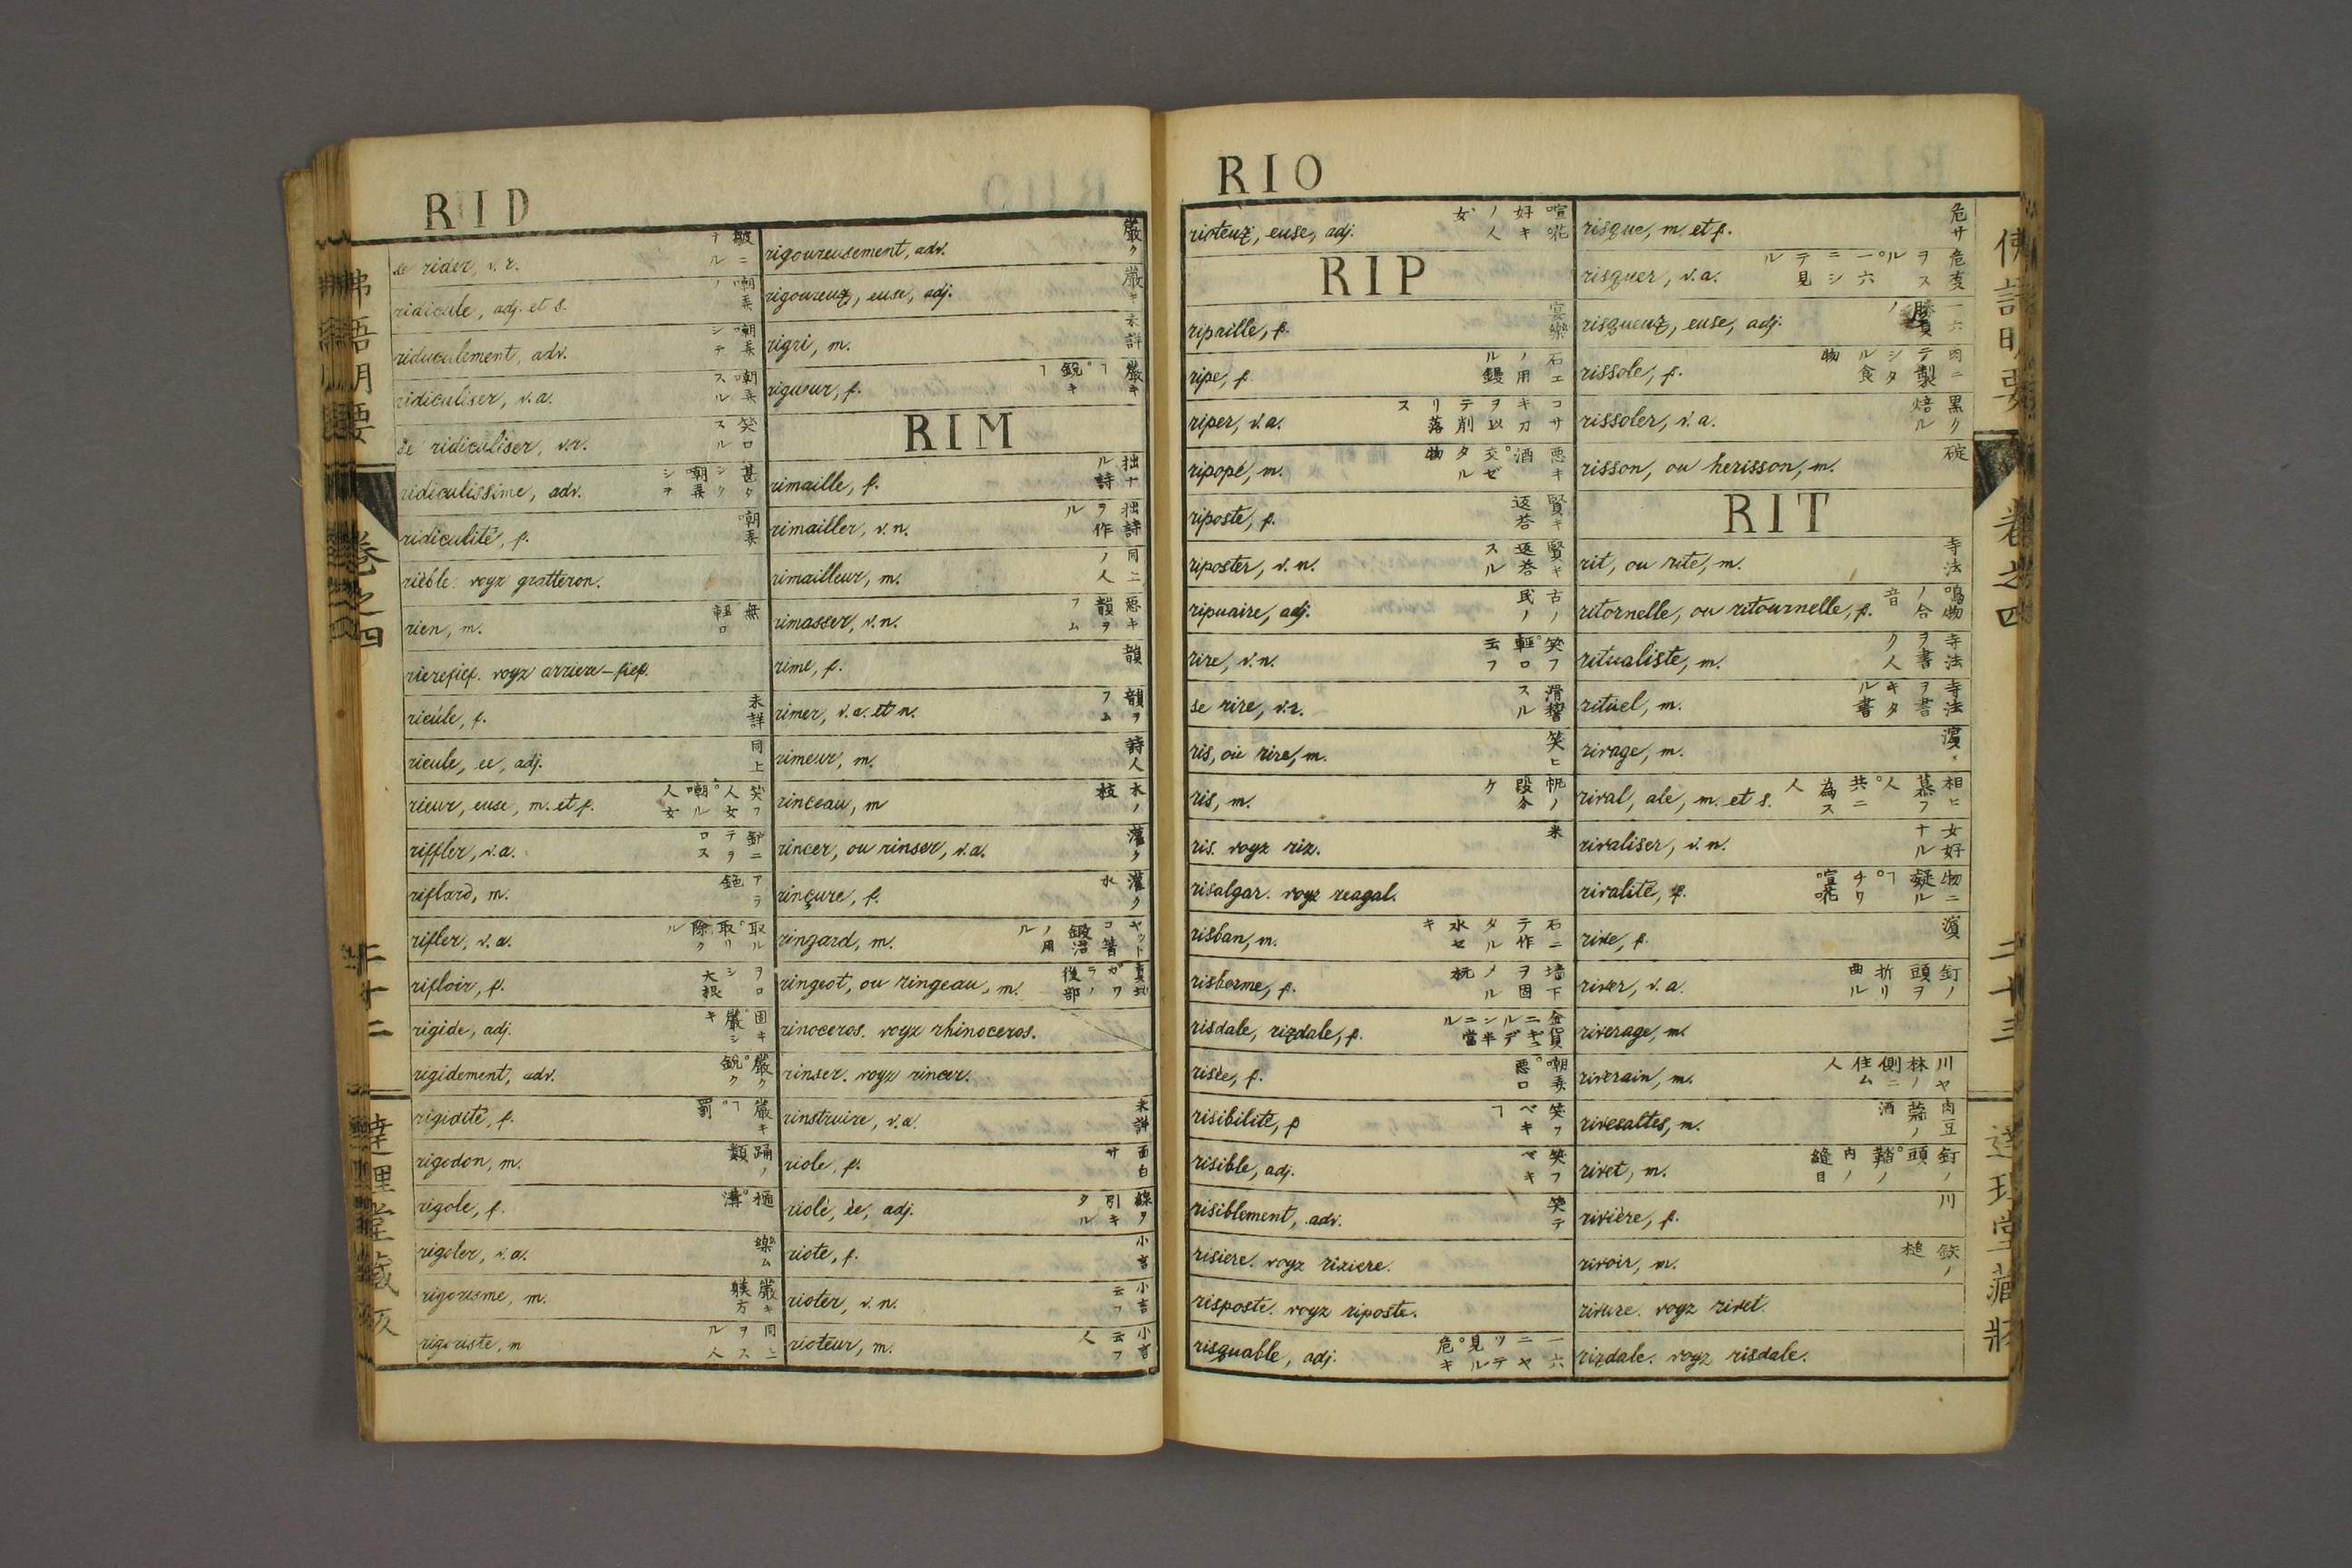 RID
se rider, v.r. 皺ニナル
ridicule, adj. et s. 嘲弄ノ
ridiculement, adv. 嘲弄シテ
ridiculiser, v.a. 嘲弄スル
se ridiculiser, v.r. 笑口スル
ridiculissime, adv. 甚タシク嘲弄シヲ
ridiculité, f. 嘲弄
rièble. voyz gratteron.
rien, m. 無 軽口
rierefief. voyz arriere-fief.
rieúle, f. 未詳
rieule, ee, adj. 同上
rieur, euse, m. et f. 笑フ人女。嘲ル人女
riffler, v.a.
riflard, m. アラ
rifler, v.a. 取ル。取リ除クル
rifloir, f. ヲロシ大根
rigide, adj. 固キ。厳シキ
rigidement, adv. 厳ク。鋭ク
rigidité, f. 厳キヿ。罰
rigodon, m. 踊ノ類
rigole, f. 樋。溝
rigoler, v.a. 樂ム
rigorisme, m. 厳キ躾方
rigoriste, m 同ニヲスル人
rigoureusement, adv. 厳ク
rigoureuz, euse, adj. 厳キ
rigri, m. 未詳
rigueur, f. 厳キヿ。鋭キヿ
RIM
rimaille, f. 拙ナル詩
rimailler, v.n. 拙詩ヲ作ル
rimailleur, m. 同ニノ人
rimasser, v.n. 悪キ韻ヲフム
rime, f. 韻
rimer, v.a. et n. 韻ヲフム
rimeur, m. 詩人
rinceau, m 木ノ枝
rincer, ou rinser, v.a. 灌ク
rinçure, f. 灌ク水
ringard, m. ヤットコ 鍛冶ノ用ル
ringeot, ou ringeau, m. 後部
rinoceros. voyz rhinoceros.
rinser. voyz rincer.
rinstruire, v.a. 未詳
riole, f. 面白サ
riolé, ée, adj. 線ヲ引キタル
riote, f. 小言
rioter, v.n. 小言云フ
rioteur, m. 小言云フ人
RIO
rioteuz, euse, adj. 喧花好キノ人女
RIP
ripaille, f. 宴樂
ripe, f. 石工ノ用ル鏝
riper, v.a. コサキヲ以テ削リ落ス
ripopé, m. 悪キ酒。交ゼタル物
riposte, f. 賢キ返答
riposter, v.n. 賢キ返答スル
ripuaire, adj. 古ノ民ノ
rire, v.n. 笑フ。軽口云フ
se rire, v.r. 滑稽スル
ris, ou rire, m. 笑ヒ
ris, m. 帆ノ段分ケ
ris. voyz riz. 米
risalgar. voyz reagal.
risban, m. 石ニテ作タル水セキ
risberme, f. 墻下ヲ固ノル杭
risdale, rizdale, f. 金貨
risée, f. 嘲弄。悪口
risibilité, f 笑フベキヿ
risible, adj. 笑フベキ
risiblement, adv. 笑テ
risiere. voyz riziere.
risposte. voyz riposte.
risquable, adj. 一六ニヤツテ見ル。危キ
risque, m. et f. 危サ
risquer, v.a. 危変ヲスル。一六ニシテ見ル
risqueuz, euse, adj. 一六勝負ノ
rissole, f. 肉ニテ製シタル食物
rissoler, v.a. 黒ク焙ル
risson, ou herisson, m. 碇
RIT
rit, ou rite, m. 寺法
ritornelle, ou ritournelle, f. 鳴物ノ合音
ritualiste, m. 寺法ヲ書ク人
rituel, m. 寺法ヲ書キタル書
rivage, m. 濱
rival, ale, m. et s. 相ヒ慕フ人。共ニ為ス人
rivaliser, v.n. 女好ナル
rivalité, f. 物ニ凝ルヿ。ヤキ喧花
rive, f. 濱
river, v.a. 釘ノ頭ヲ折リ曲ル
riverage, m.
riverain, m. 川ヤ林ノ側ニ住ム人
rivesaltes, m. 酒
rivet, m. 釘ノ頭。鞜ノ内ノ縫目
rivière, f. 川
rivoir, m. 鉄ノ槌
rivure. voyz rivet.
rizdale. voyz risdale.
佛語明要 卷之四 二十二 達理堂藏版
佛語明要 卷之四 二十三 達理堂藏版